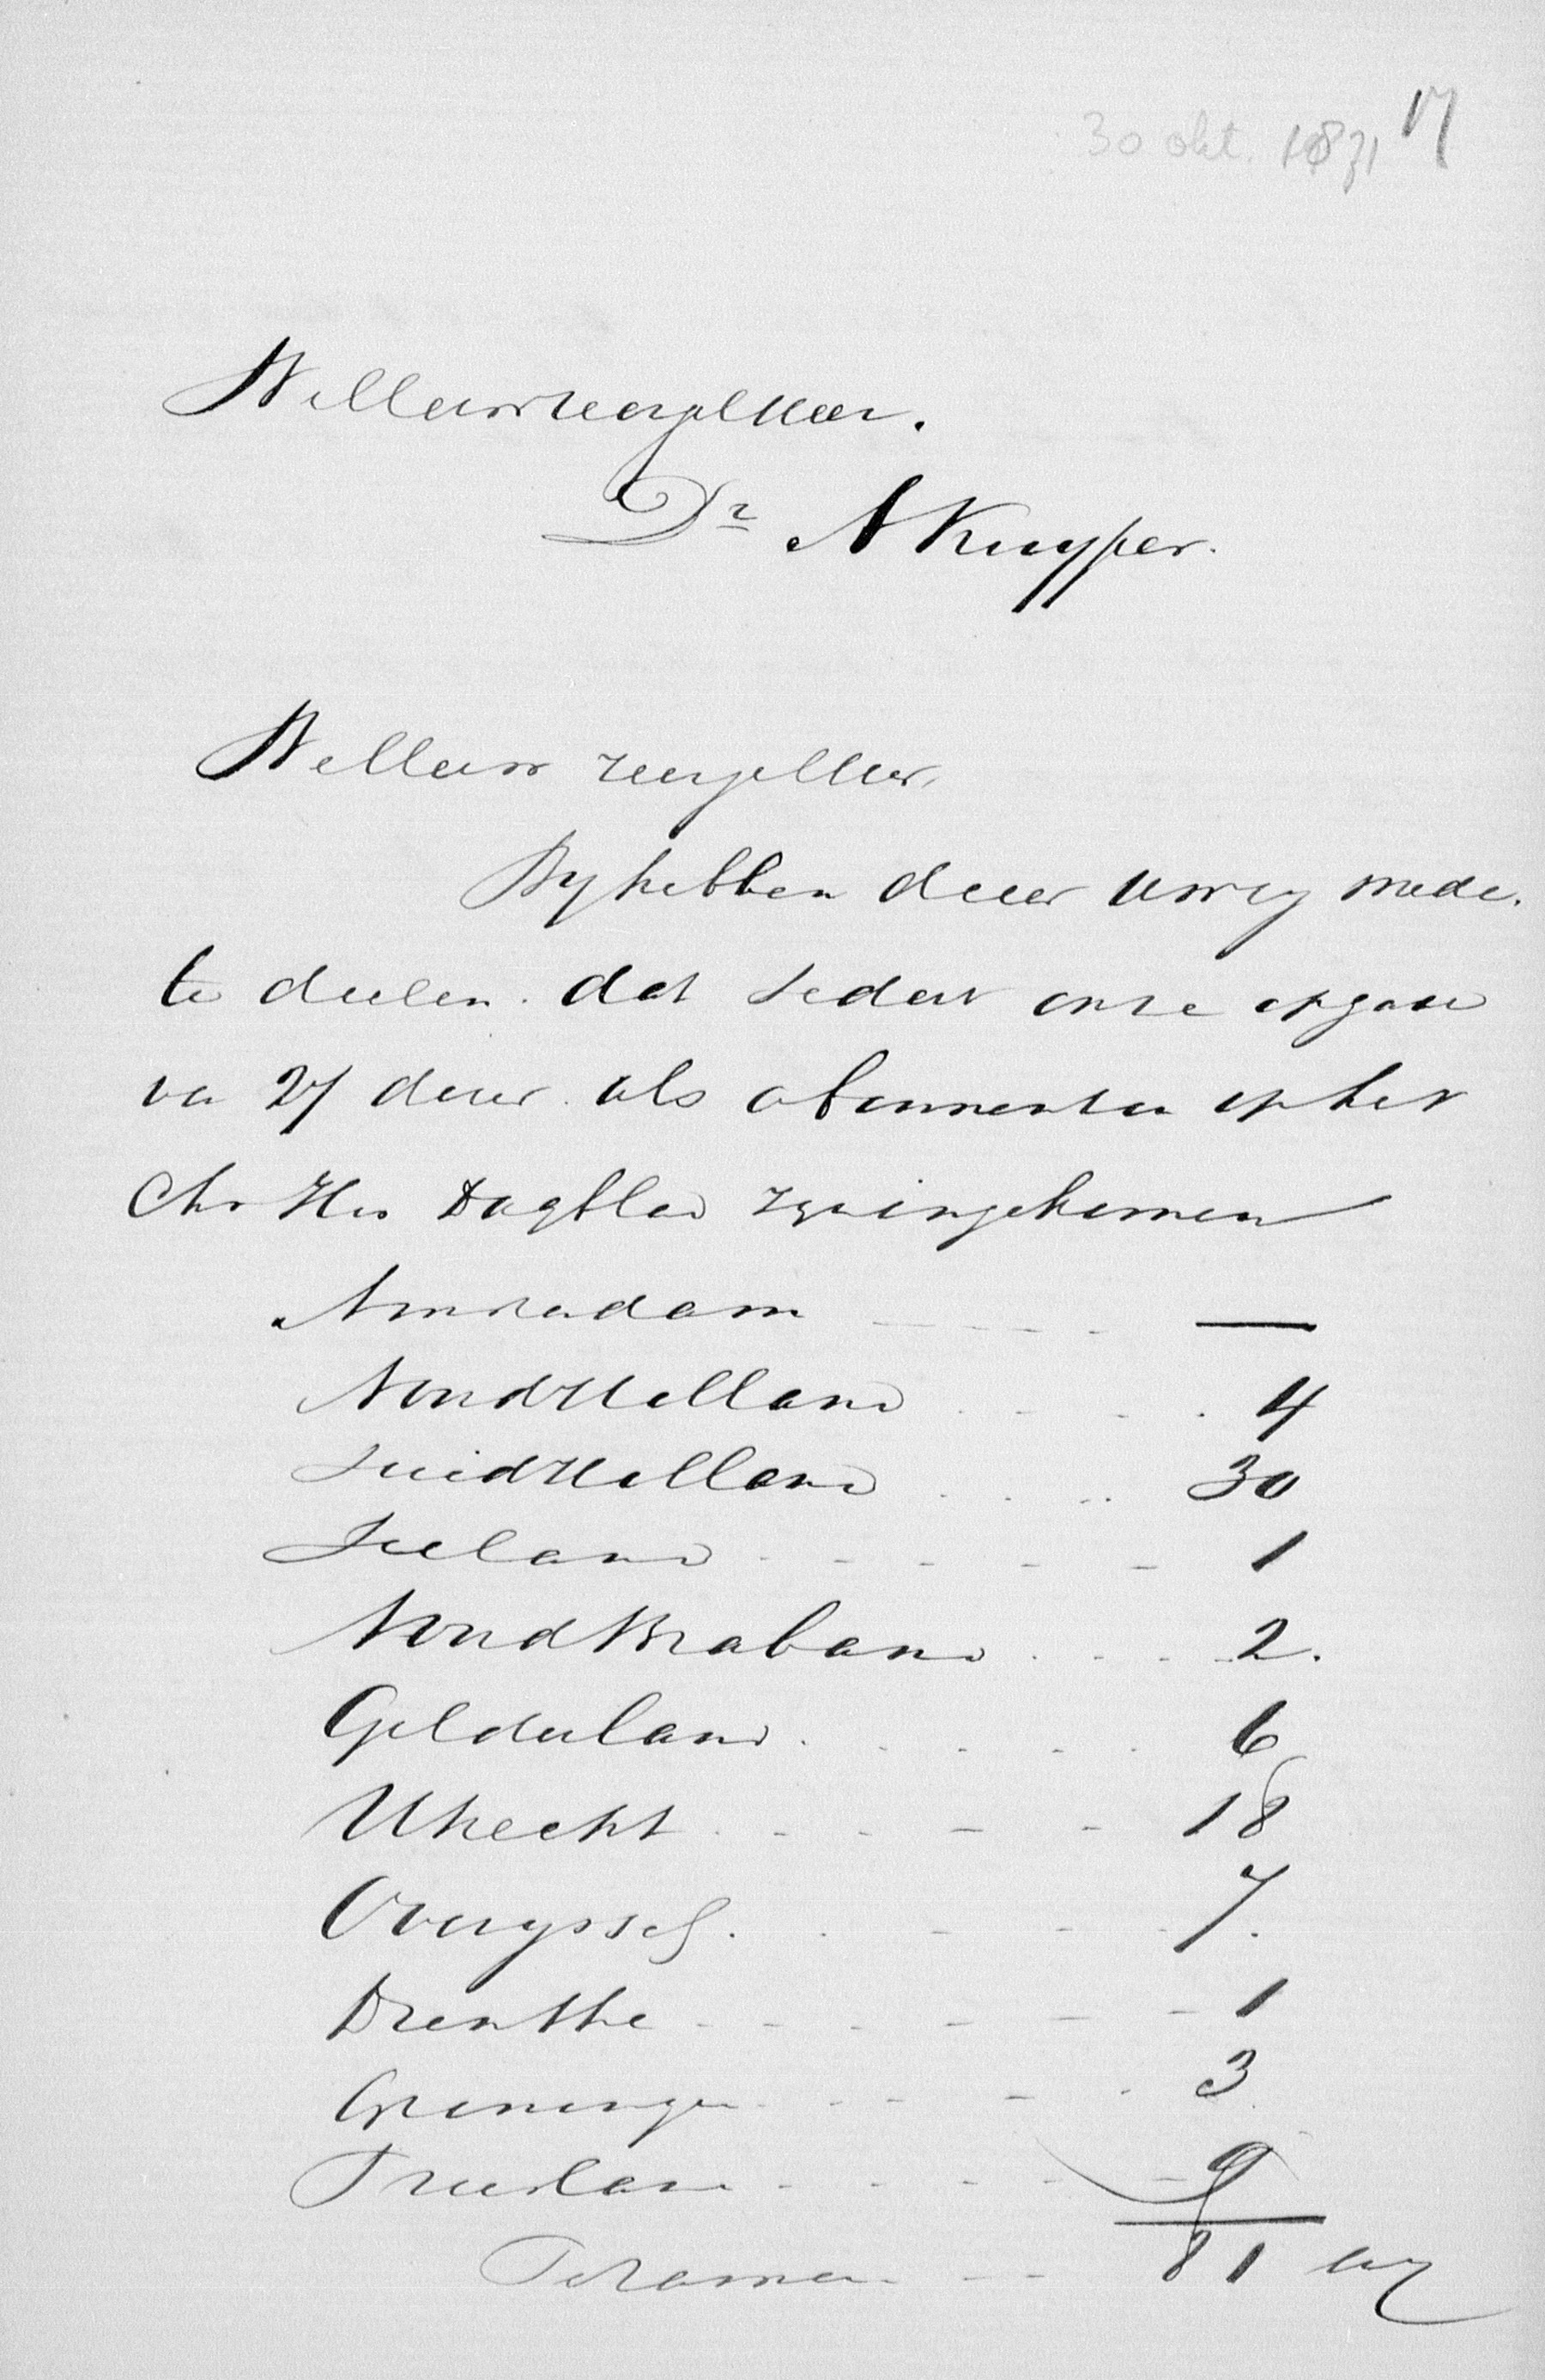 30 okt. 1871 17
WelEerw Zeergel Heer.
Dr A Kuyper.
WelEerw Zeergel Heer,
Wy hebben de eer UwEg mede
te deelen dat sedert onze opgave
van 27 dezer als abonnenten op het
Chr His Dagblad zyn ingekomen
Amsterdam - - - - —
NoordHolland . - - . 4
ZuidHolland . . . . 30
Zeeland - - - - - 1
NoordBraband . - - - 2.
Gelderland . . . - . 6
Utrecht . - - - - 18
Overyssel . . - - - 7.
Drenthe - - - - - - 1
Groningen - - - - . 3
Friesland - - - - - 9
Te zamen - - 81